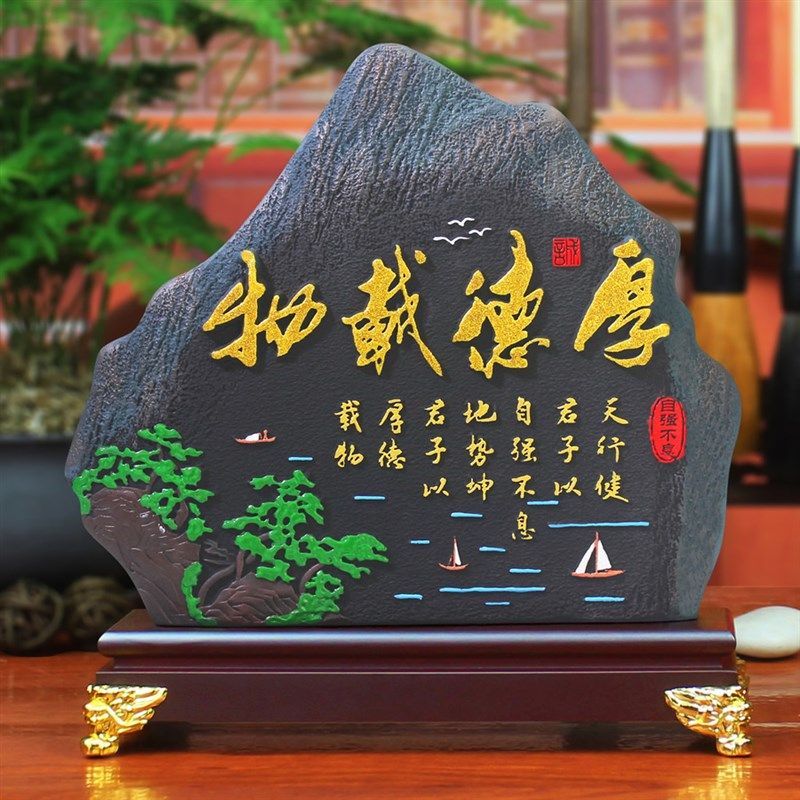 厚德載物
天行健
君子以
自强不息
地势坤
君子以
厚德
载物
自强不息
誠